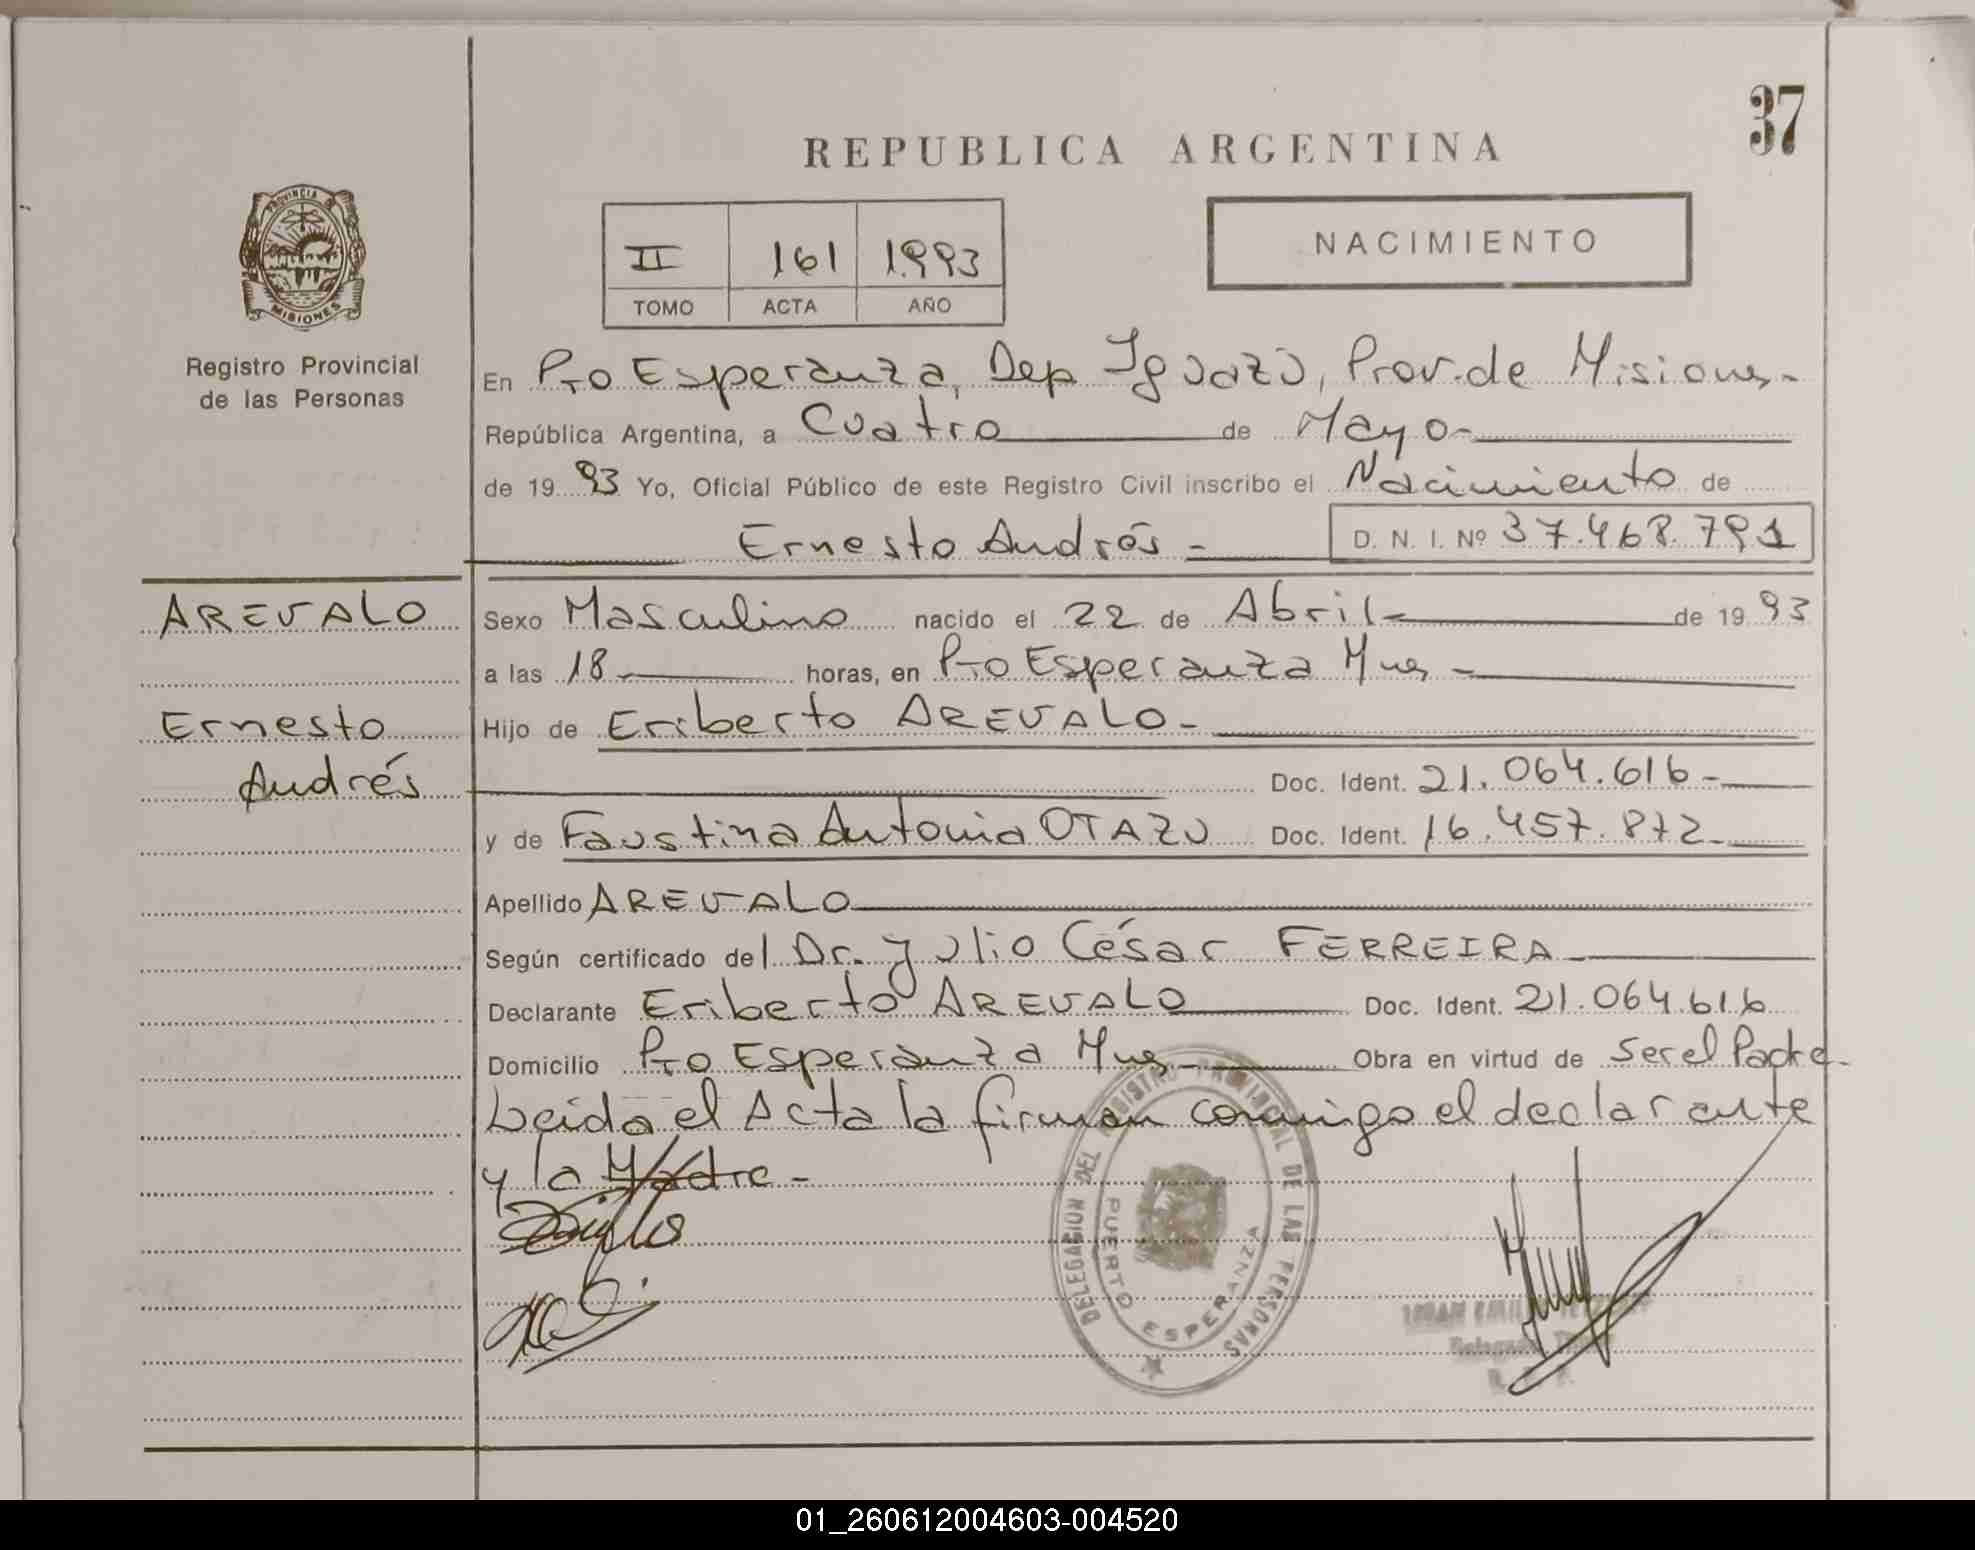 37
REPUBLICA ARGENTINA
PROVINCIA DE
MISIONES
Registro Provincial
de las Personas
II 161 1993
TOMO ACTA AÑO
NACIMIENTO
En Pto Esperanza, Dep Iguazú, Prov. de Misiones-
República Argentina, a Cuatro de Mayo-
de 19 93 Yo, Oficial Público de este Registro Civil inscribo el Nacimiento de
Ernesto Andrés - D. N. I. Nº 37.468.791
AREVALO
Ernesto
Andrés
Sexo Masculino nacido el 22 de Abril- de 19 93
a las 18 horas, en Pto Esperanza Mnes -
Hijo de Eriberto AREVALO-
Doc. Ident. 21.064.616-
y de Faustina Antonia OTAZU Doc. Ident. 16.457.872-
Apellido AREVALO
Según certificado del Dr. Julio César FERREIRA-
Declarante Eriberto AREVALO Doc. Ident. 21.064.616
Domicilio Pto Esperanza Mnes- Obra en virtud de Ser el Padre-
Leida el Acta la firman conmigo el declarante
y la Madre-
DELEGACION DEL REGISTRO PROVINCIAL DE LAS PERSONAS
PUERTO ESPERANZA
01_260612004603-004520